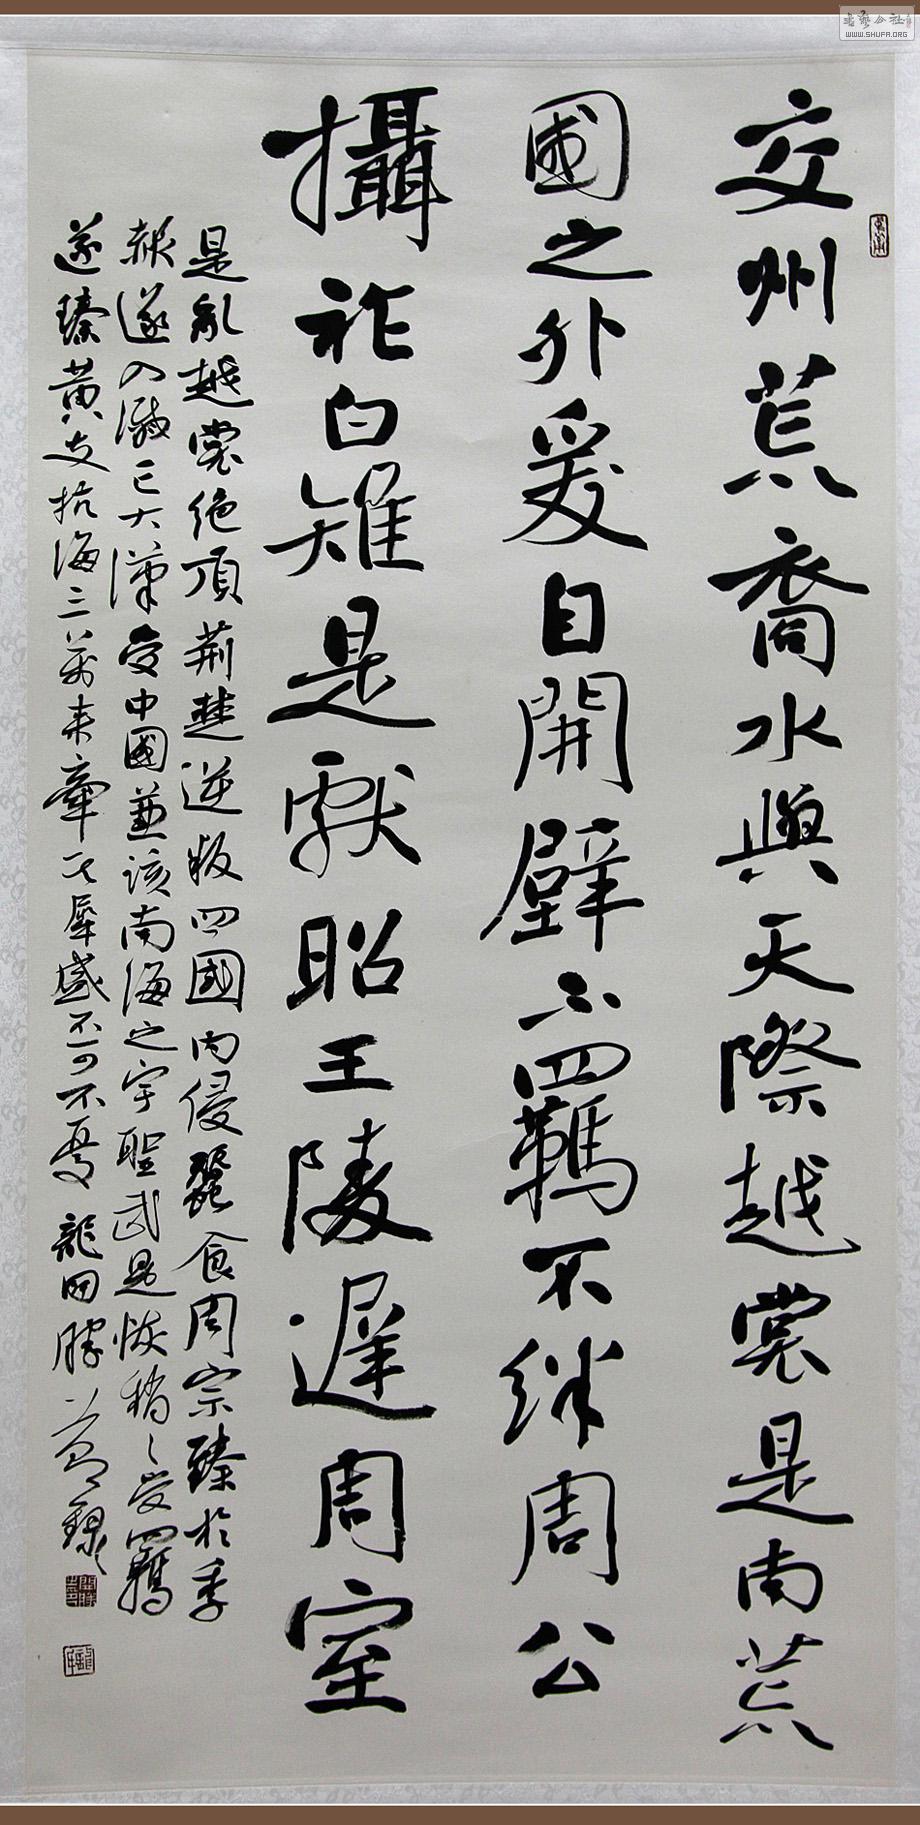 交州荒裔水與天際越裳是南荒
國之外爰自開壁不羈不絆周公
攝祚白雉是獻昭王陵遲周室
是亂越裳絕頂荊楚逆叛四國內侵蠶食周宗臻於季
赧遂入滅亡大漢受中國兼該南海之宇聖武是恢稍稍受羈
遂臻黃支抗海三萬來牽其犀盛不可不憂 龍開勝 錄
書藝公社
WWW.SHUFA.ORG